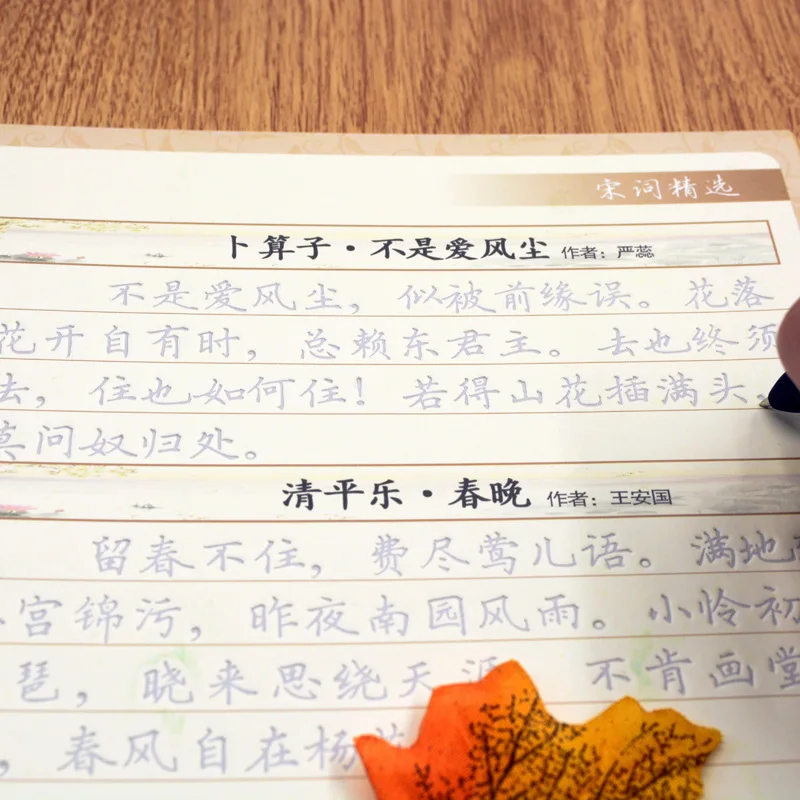 宋词精选
卜算子·不是爱风尘 作者：严蕊
不是爱风尘，似被前缘误。花落
花开自有时，总赖东君主。去也终须
去，住也如何住！若得山花插满头，
莫问奴归处。
清平乐·春晚 作者：王安国
留春不住，费尽莺儿语。满地
宫锦污，昨夜南园风雨。小怜初
琶，晓来思绕天涯 不肯画堂
，春风自在杨